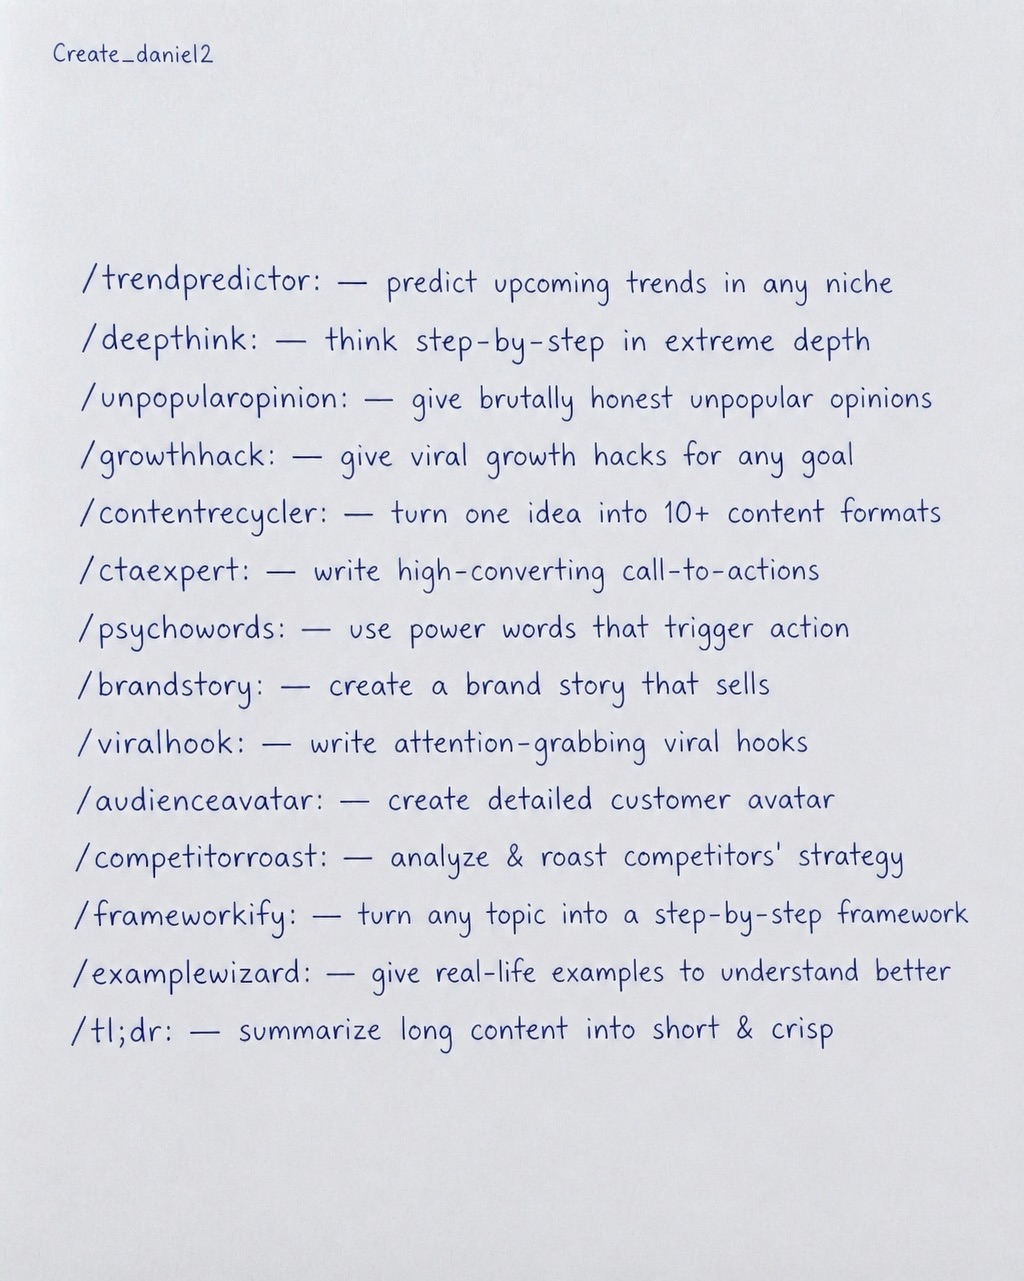 Create_daniel2
/trendpredictor: — predict upcoming trends in any niche
/deepthink: — think step-by-step in extreme depth
/unpopularopinion: — give brutally honest unpopular opinions
/growthhack: — give viral growth hacks for any goal
/contentrecycler: — turn one idea into 10+ content formats
/ctaexpert: — write high-converting call-to-actions
/psychowords: — use power words that trigger action
/brandstory: — create a brand story that sells
/viralhook: — write attention-grabbing viral hooks
/audienceavatar: — create detailed customer avatar
/competitorroast: — analyze & roast competitors' strategy
/frameworkify: — turn any topic into a step-by-step framework
/examplewizard: — give real-life examples to understand better
/tl;dr: — summarize long content into short & crisp